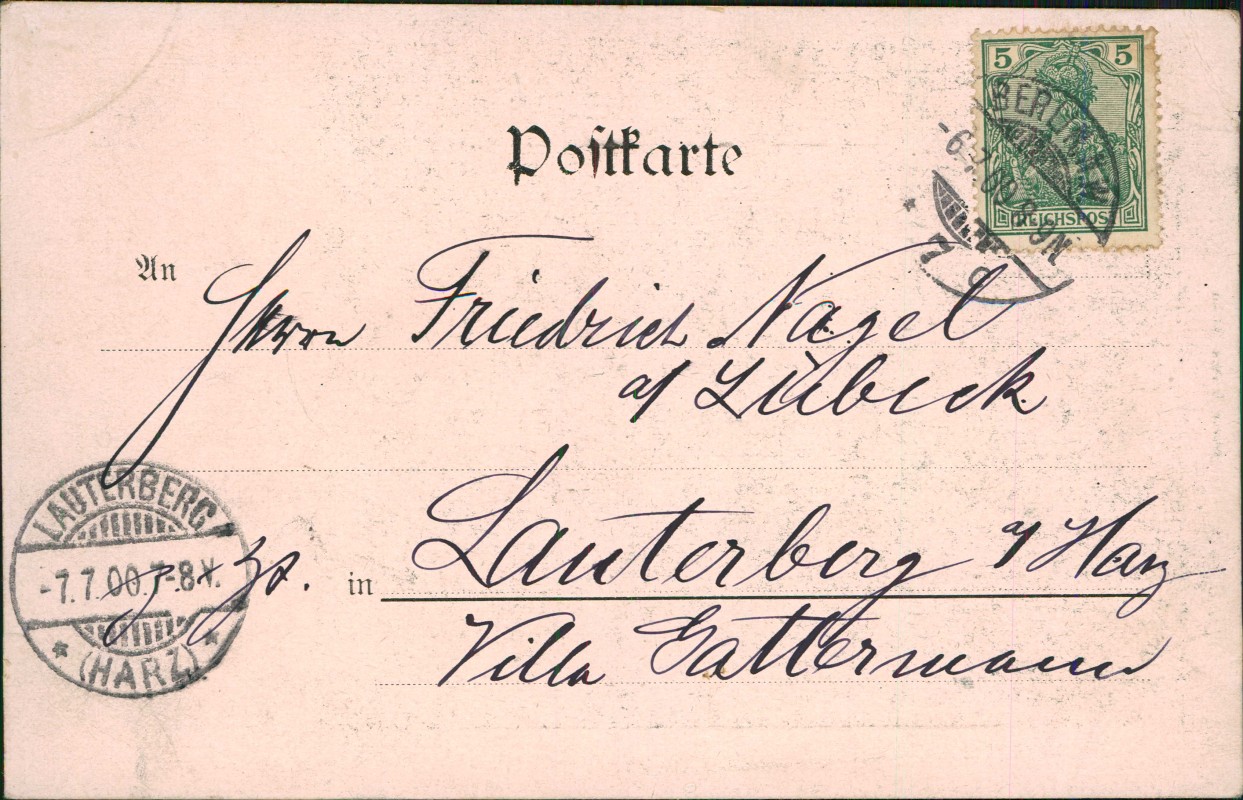 5 5
REICHSPOST
BERLIN
-6.7.00 8-9N
Postkarte
An
Herrn Friedrich Nagel
a/ Lübeck
LAUTERBERG
-7.7.00.7-8V.
(HARZ)
z. Zt.
in Lauterberg a/ Harz
Villa Gattermann